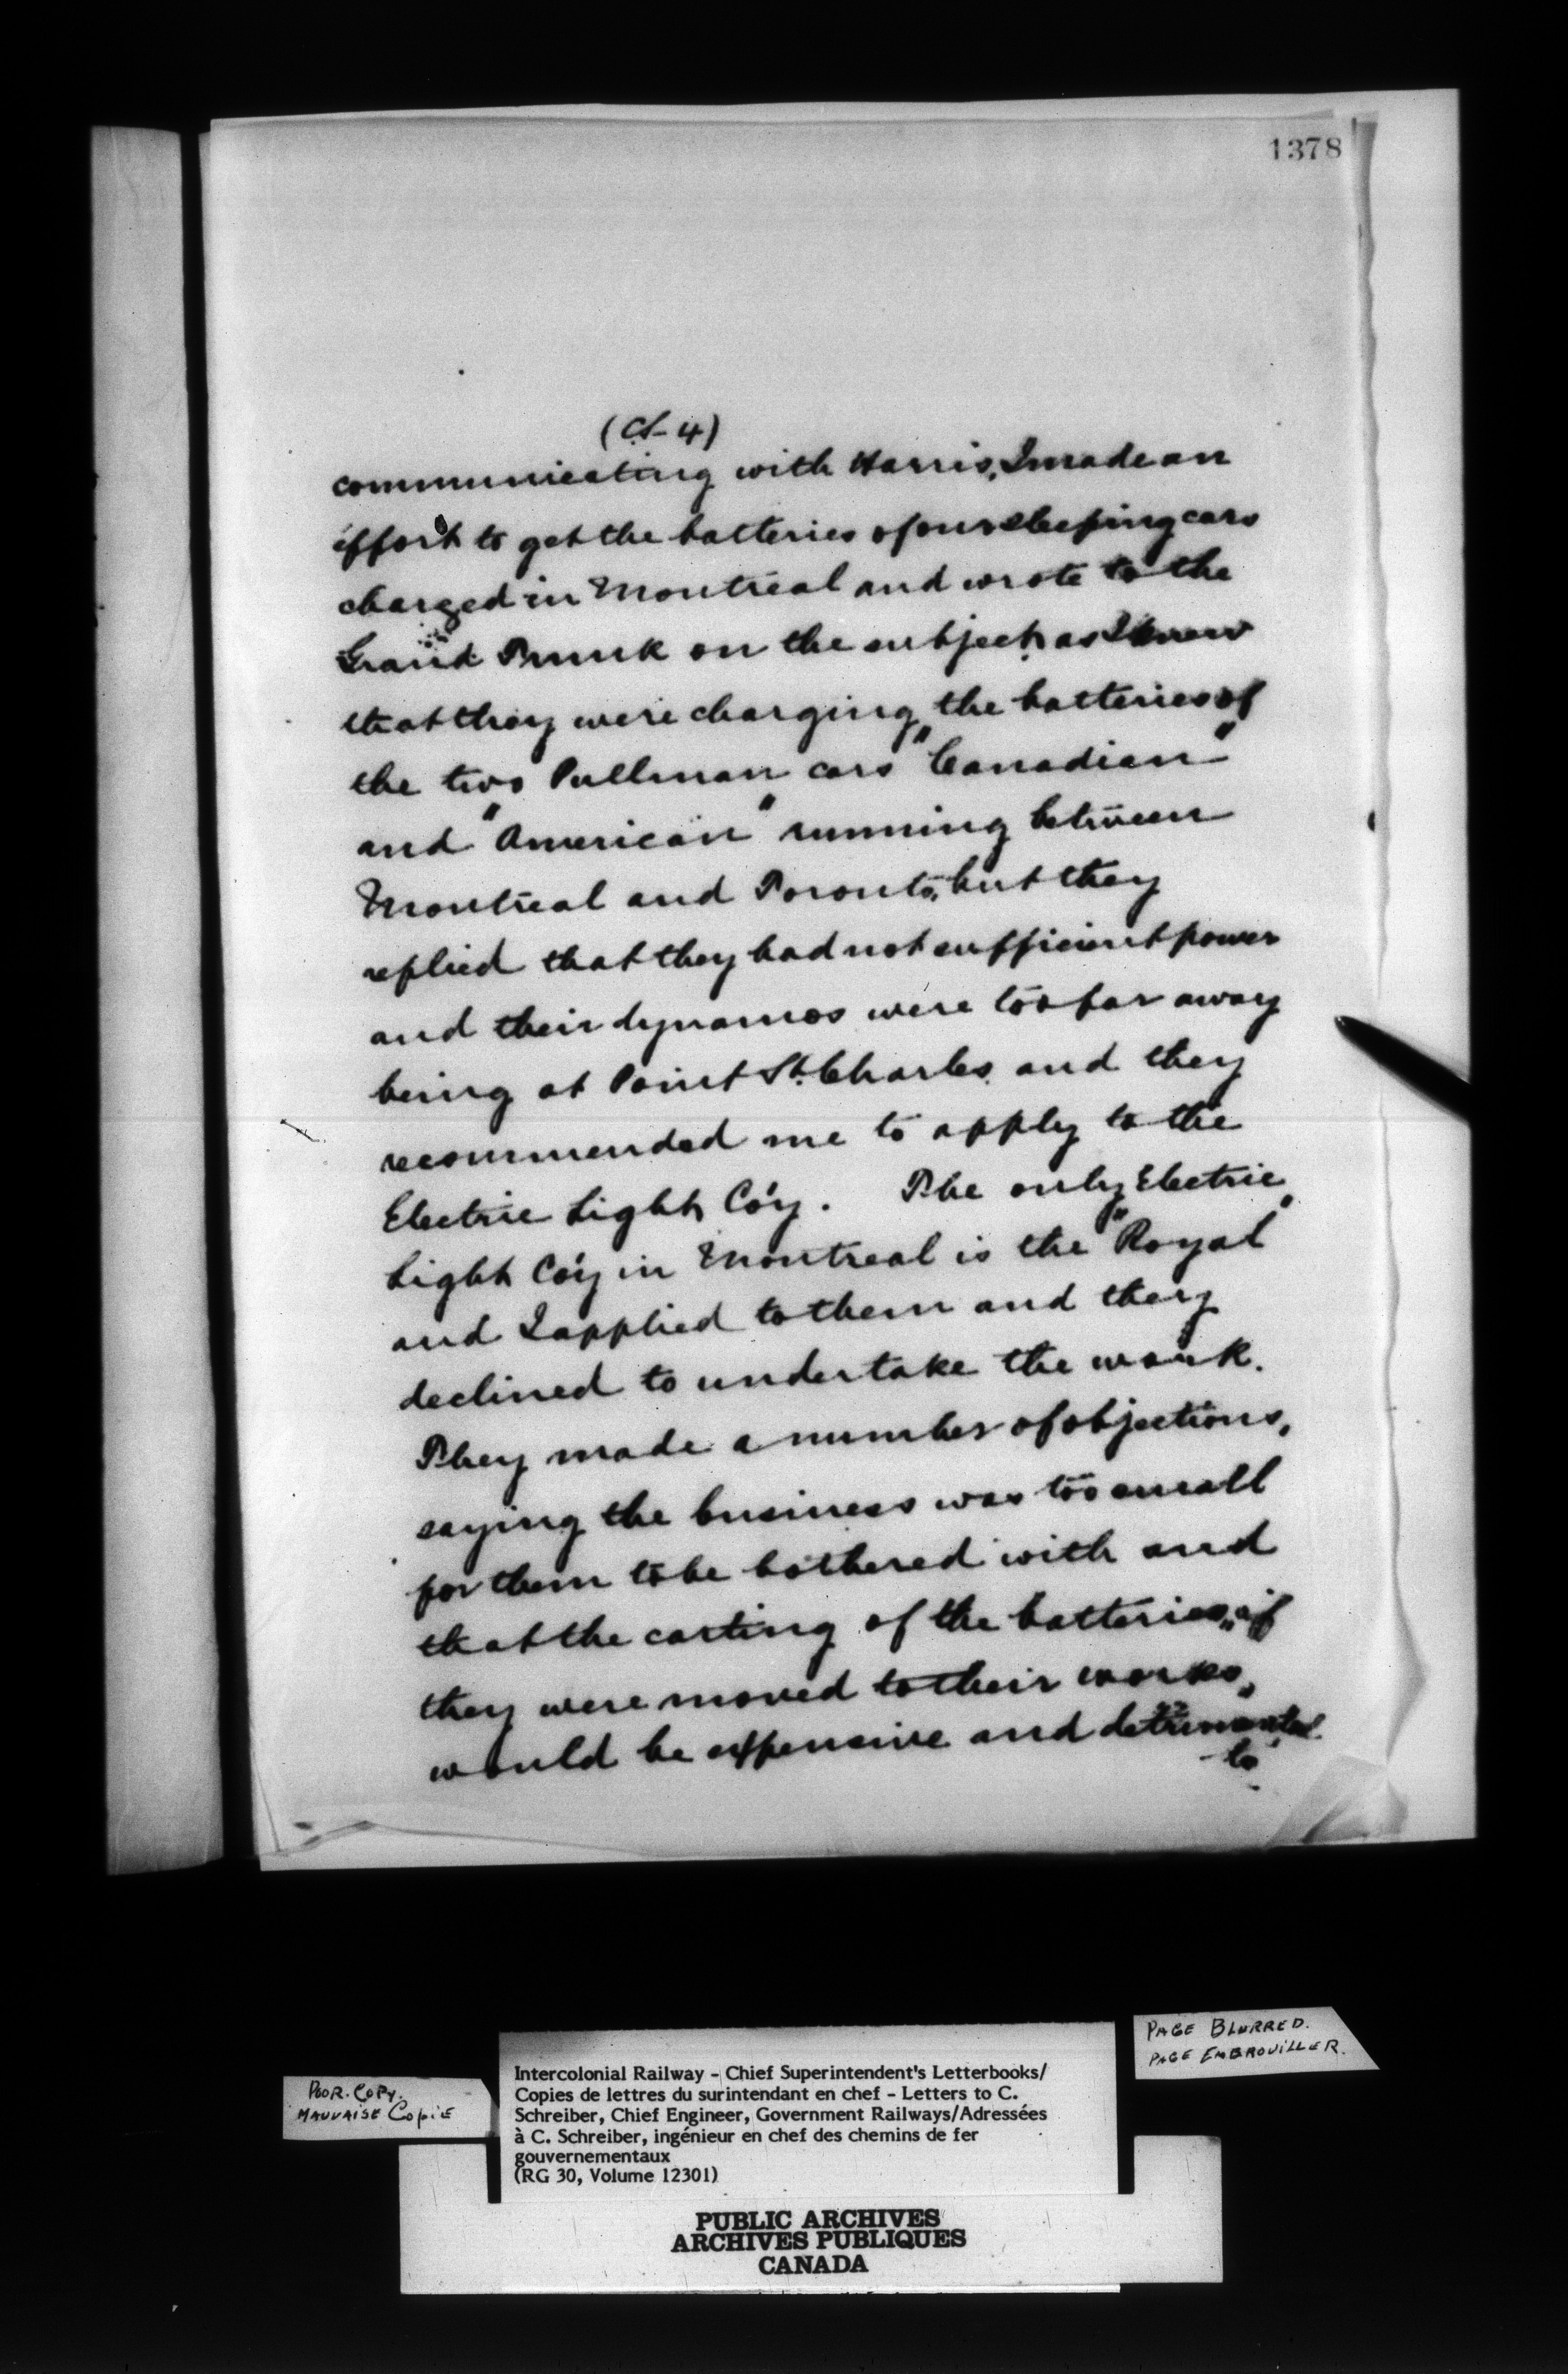 1378
(CS-4)
communicating with Harris, I made an
effort to get the batteries of our sleeping cars
charged in Montreal and wrote to the
Grand Trunk on the subject, as I knew
that they were charging the batteries of
the two Pullman cars "Canadian"
and "American" running between
Montreal and Toronto, but they
replied that they had not sufficient power
and their dynamos were too far away
being at Point St. Charles and they
recommended me to apply to the
Electric Light Co'y. The only Electric
Light Co'y in Montreal is the "Royal"
and I applied to them and they
declined to undertake the work.
They made a number of objections,
saying the business was too small
for them to be bothered with and
that the carting of the batteries, if
they were moved to their works,
would be expensive and detrimental
to
POOR COPY.
MAUVAISE COPIE
PAGE BLURRED.
PAGE EMBROUILLER.
Intercolonial Railway - Chief Superintendent's Letterbooks/
Copies de lettres du surintendant en chef - Letters to C.
Schreiber, Chief Engineer, Government Railways/Adressées
à C. Schreiber, ingénieur en chef des chemins de fer
gouvernementaux
(RG 30, Volume 12301)
PUBLIC ARCHIVES
ARCHIVES PUBLIQUES
CANADA